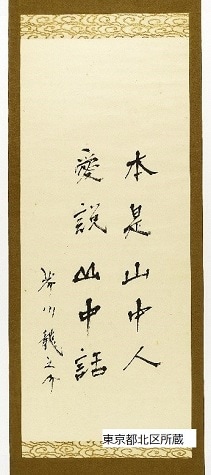 本是山中人
愛説山中話
芥川龍之介
東京都北区所蔵